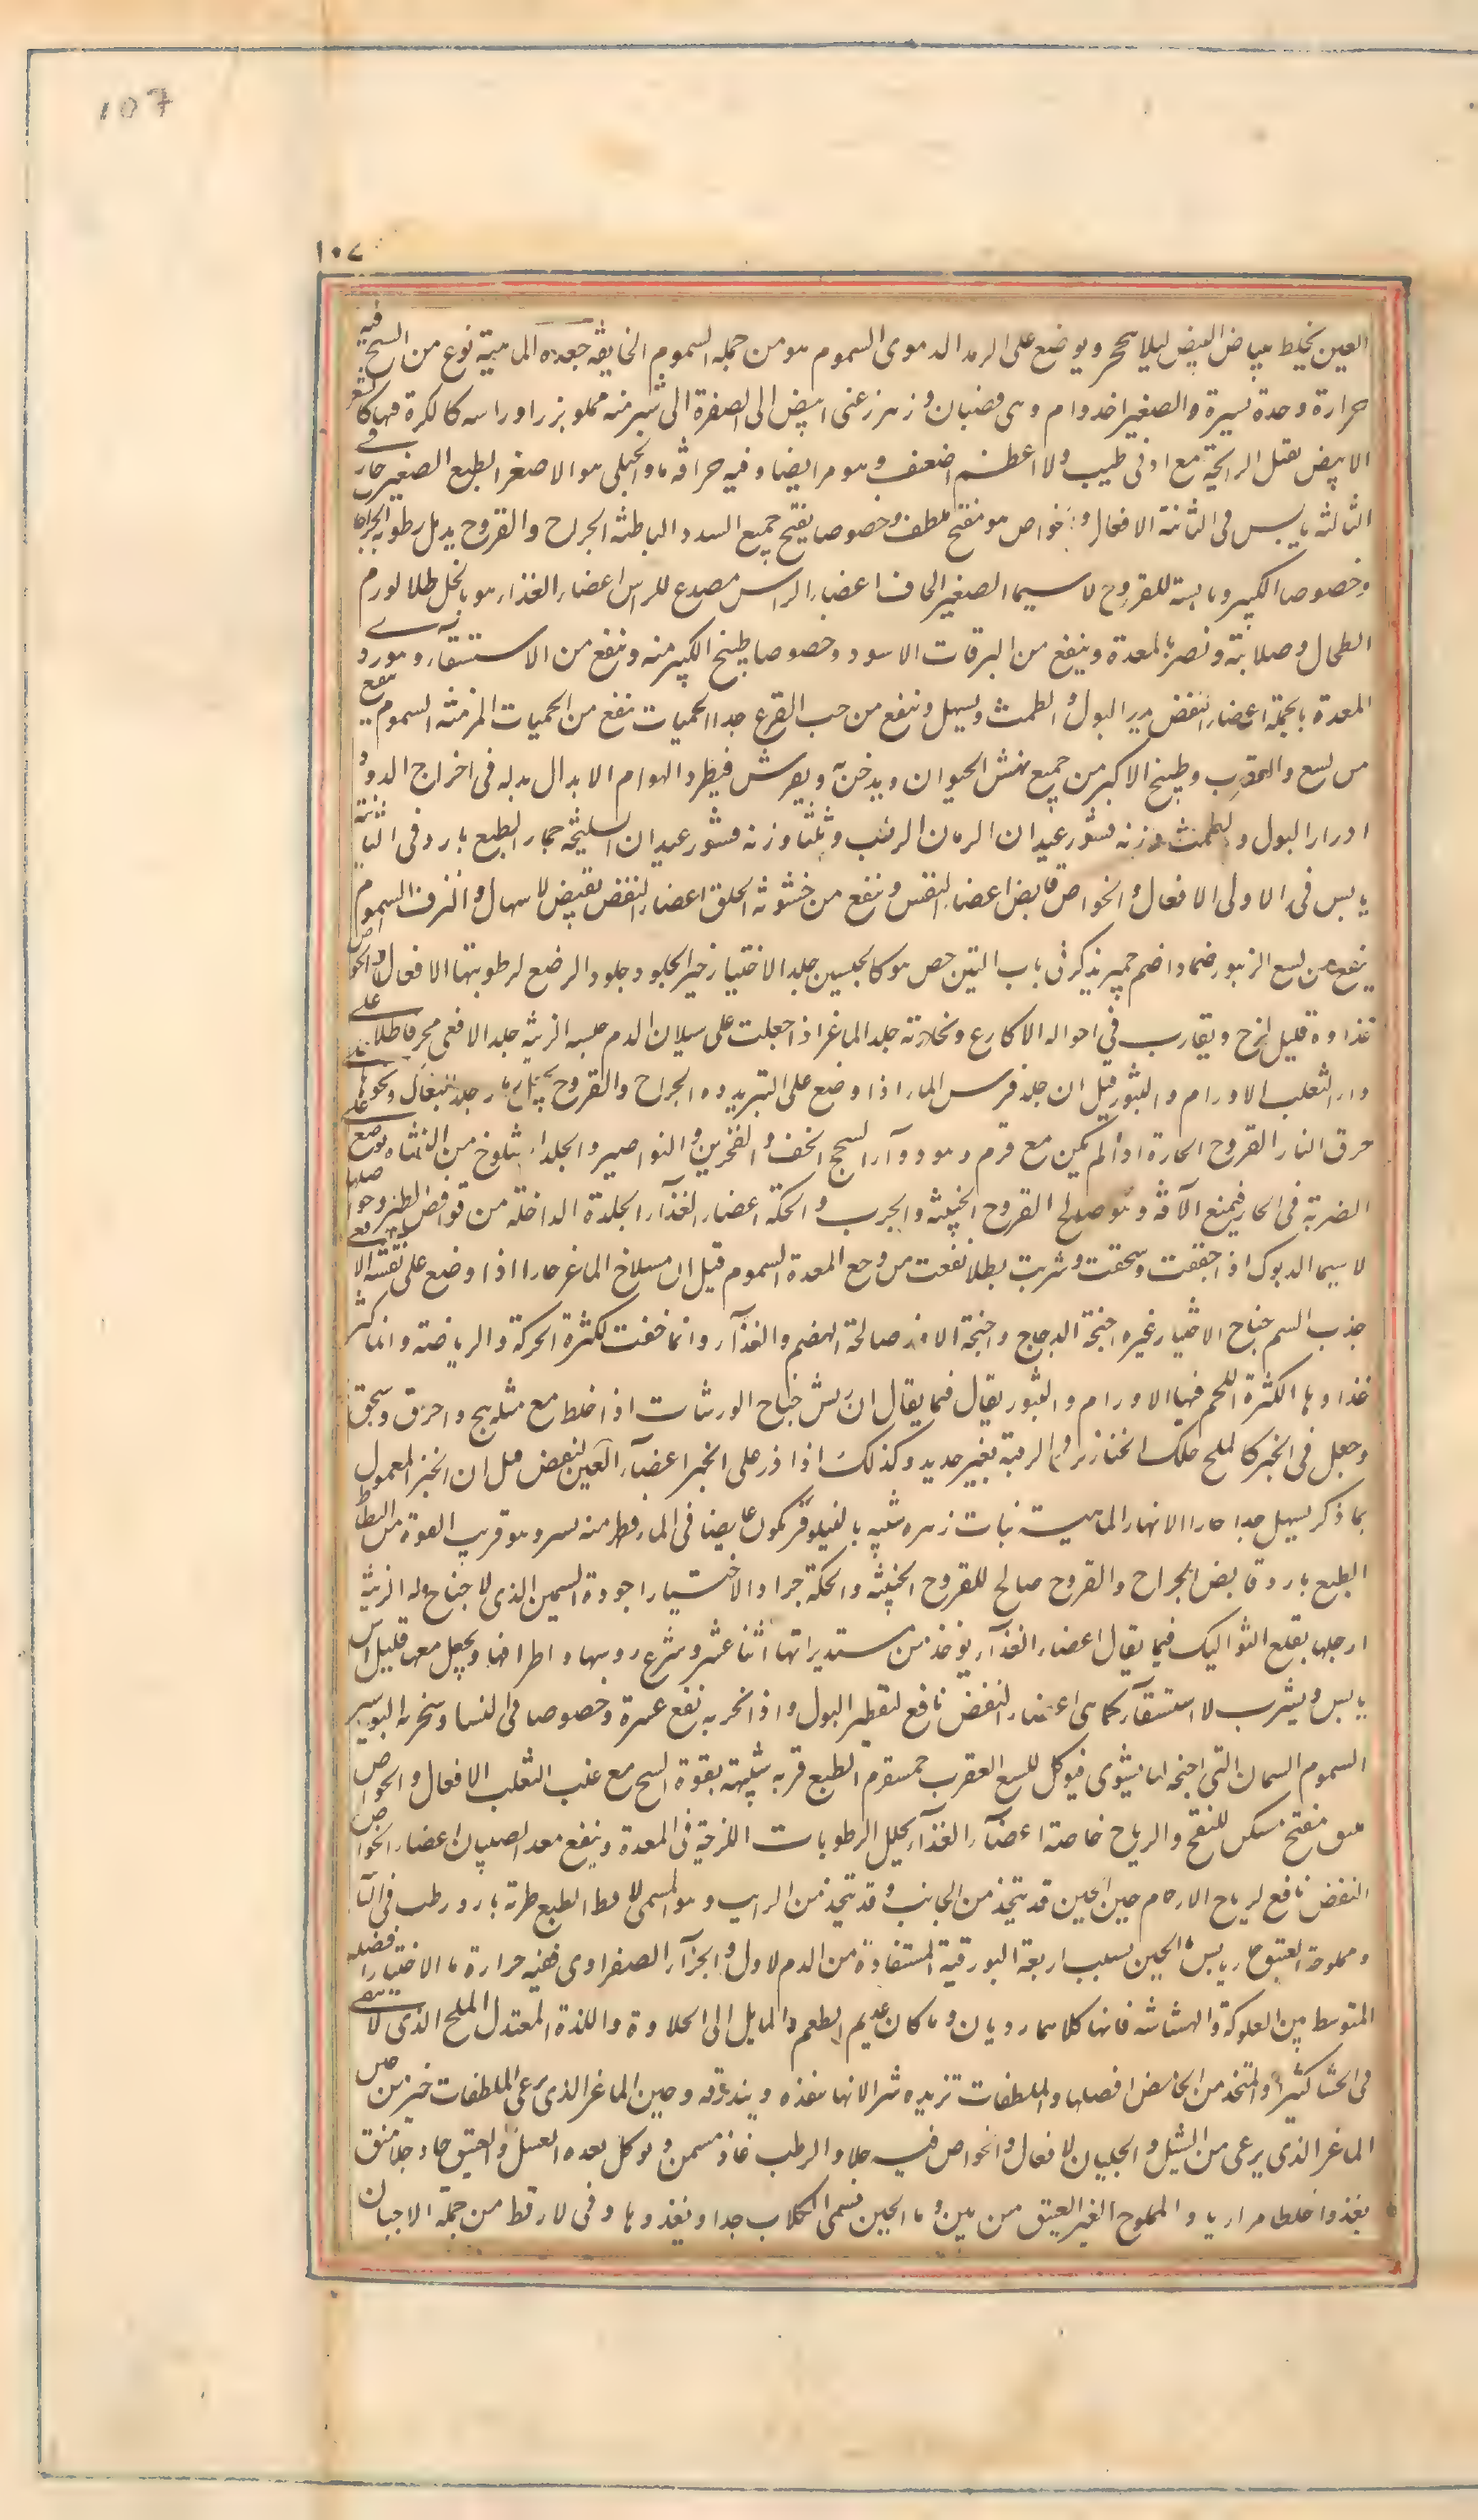 107
١٠٧
العين يخلط ببياض البيض ليلا يحجر ويوضع على الرمد الدموى السموم هو من جملة السموم الخانقة جعدة الماهية نوع من الشيح فيه
حرارة وحدة يسيرة والصغير احد وام وهى قضبان و زهر زغبى ابيض الى الصفرة الى شبر منه مملو بزرا وراسه كالكرة فيها كالشعر
الابيض ثقيل الرايحة مع ادنى طيب والاعظم اضعف وهو مر ايضا وفيه حرافة ما والجبلى هو الاصغر الطبع الصغير حار فى
الثالثة يابس فى الثانية الافعال والخواص هو مفتح ملطف وخصوصا يفتح جميع السدد الباطنة الجراح والقروح يدمل رطوبة الجراحات
وخصوصا الكبير ويابسه للقروح لا سيما الصغير الجاف اعضاء الراس مصدع للراس اعضاء الغذاء هو بالخل طلا لورم
الطحال وصلابته ونضر بالمعدة وينفع من اليرقان الاسود وخصوصا طبيخ الكبير منه وينفع من الاستسقاء وهو ردى
المعدة بالجملة اعضاء النفض يدر البول والطمث ويسهل وينفع من حب القرع جدا الحميات ينفع من الحميات المزمنة السموم ينفع
من لسع العقرب وطبيخ الاكبر من جميع نهش الحيوان ويدخن ويفرش فيطرد الهوام الابدال بدله فى اخراج الدود و
ادرار البول والطمث وزنه قشور عيدان الرمان الرطب وثلثا وزنه قشور عيدان السليخة جمار الطبع بارد فى الثانية
يابس فى الاولى الافعال والخواص قابض اعضاء النفس ينفع من خشونة الحلق اعضاء النفض يقبض الاسهال والنزف السموم
ينفع من لسع الزنبور ضمادا جميز يذكر فى باب التين جص هو كالجبسين جلد الاختيار خير الجلود جلود الرضع لرطوبتها الافعال والخواص
غذاوه قليل لزج ويقارب فى احواله الاكارع ونحاتة جلد الماعز اذا جعلت على سيلان الدم حبسه الزينة جلد الافعى محرقا طلا على
داء الثعلب الاورام والبثور قيل ان جلد فرس الماء اذا وضع على البثر بدده الجراح والقروح رماد جلد البغال ونحوها على
حرق النار القروح الحارة اذا لم يكن مع ورم وهو دواء السحج الخف والفخذين والنواصير والجلد يسلخ من الشاة يوضع على
الضربة فى الحار فيمنع الآفة وهو صالح القروح الخبيثة والجرب والحكة اعضاء الغذاء الجلدة الداخلة من قوانص الطير وحواصلها
لا سيما الديوك اذا جففت وسحقت وشربت بطلا نفعت من وجع المعدة السموم قيل ان مسلاخ الماعز حارا اذا وضع على نهشة الافعى
جذب السم جناح الاختيار خيره اجنحة الدجاج واجنحة الاوز صالحة الهضم والغذاء وانما خفت لكثرة الحركة والرياضة وانما كثر
غذاوها لكثرة اللحم فيها الاورام والبثور يقال فيما يقال ان ريش جناح الورشان اذا خلط مع مثله بنج واحرق وسحق
وجعل فى الخبز كالملح حلل الخنازير والرقبة بغير حديد وكذلك اذا ذر على الخبز اعضاء العين لنفض قيل ان الخبز المعمول
بما ذكر يسهل جدا جار الانهار الماهية نبات زهره شبيه بالنيلوفر يكون غايصا فى الماء يظهر منه يسير وهو قريب القوة من البطباط
الطبع بارد قابض الجراح والقروح صالح للقروح الخبيثة والحكة جراد الاختيار اجوده السمين الذى لا جناح له الزينة
ارجلها يقلع الثواليل فيما يقال اعضاء الغذاء يوخذ من مستديراتها اثنا عشر وينزع روسها واطرافها ويجعل معها قليل اس
يابس ويشرب للاستسقاء كما هى اعضاء النفض نافع لتقطير البول واذا بخر به نفع عسره وخصوصا فى النسا ويتبخر به البواسير
السموم السمان التى اجنحة لها يشوى فيوكل للسع العقرب جمسفرم الطبع قوته شبيهة بقوة الشيح مع عنب الثعلب الافعال والخواص
هو مفتح مسكن للنفخ والرياح خاصة اعضاء الغذاء يحلل الرطوبات اللزجة فى المعدة وينفع معد الصبيان اعضاء
النفض نافع لرياح الارحام جبن الجبن قد يتخذ من الحليب وقد يتخذ من الرايب وهو المسمى الاقط الطبع طريه بارد رطب فى الثانية
ومملوحه العتيق حار يابس ماء الجبن بسبب اربعة البورقية المستفادة من الدم الاول والجزء الصفراوى ففيه حرارة ما الاختيار افضله
المتوسط بين العلوكة والهشاشة فانهما كلاهما رديان وما كان عديم الطعم والمايل الى الحلاوة واللذة المعتدل الملح الذى لا يبقى
فى الحشا كثيرا والمتخذ من الحامض افضلها والملطفات تزيده شرا لانها تنفذه ويبذرقه وجبن الماعز الذى يرعى الملطفات خير من جبن
الماعز الذى يرعى من الثيل والجلبان الافعال والخواص فيه جلا والرطب غاذ مسمن ويوكل بعده العسل والعتيق حاد جلا منق
يغذو اخلطا مراريا والمملوح الغير العتيق من بين وماء الجبن تسمى الكلاب جدا ويغذوها وفى الاقط من جملة الاجبان